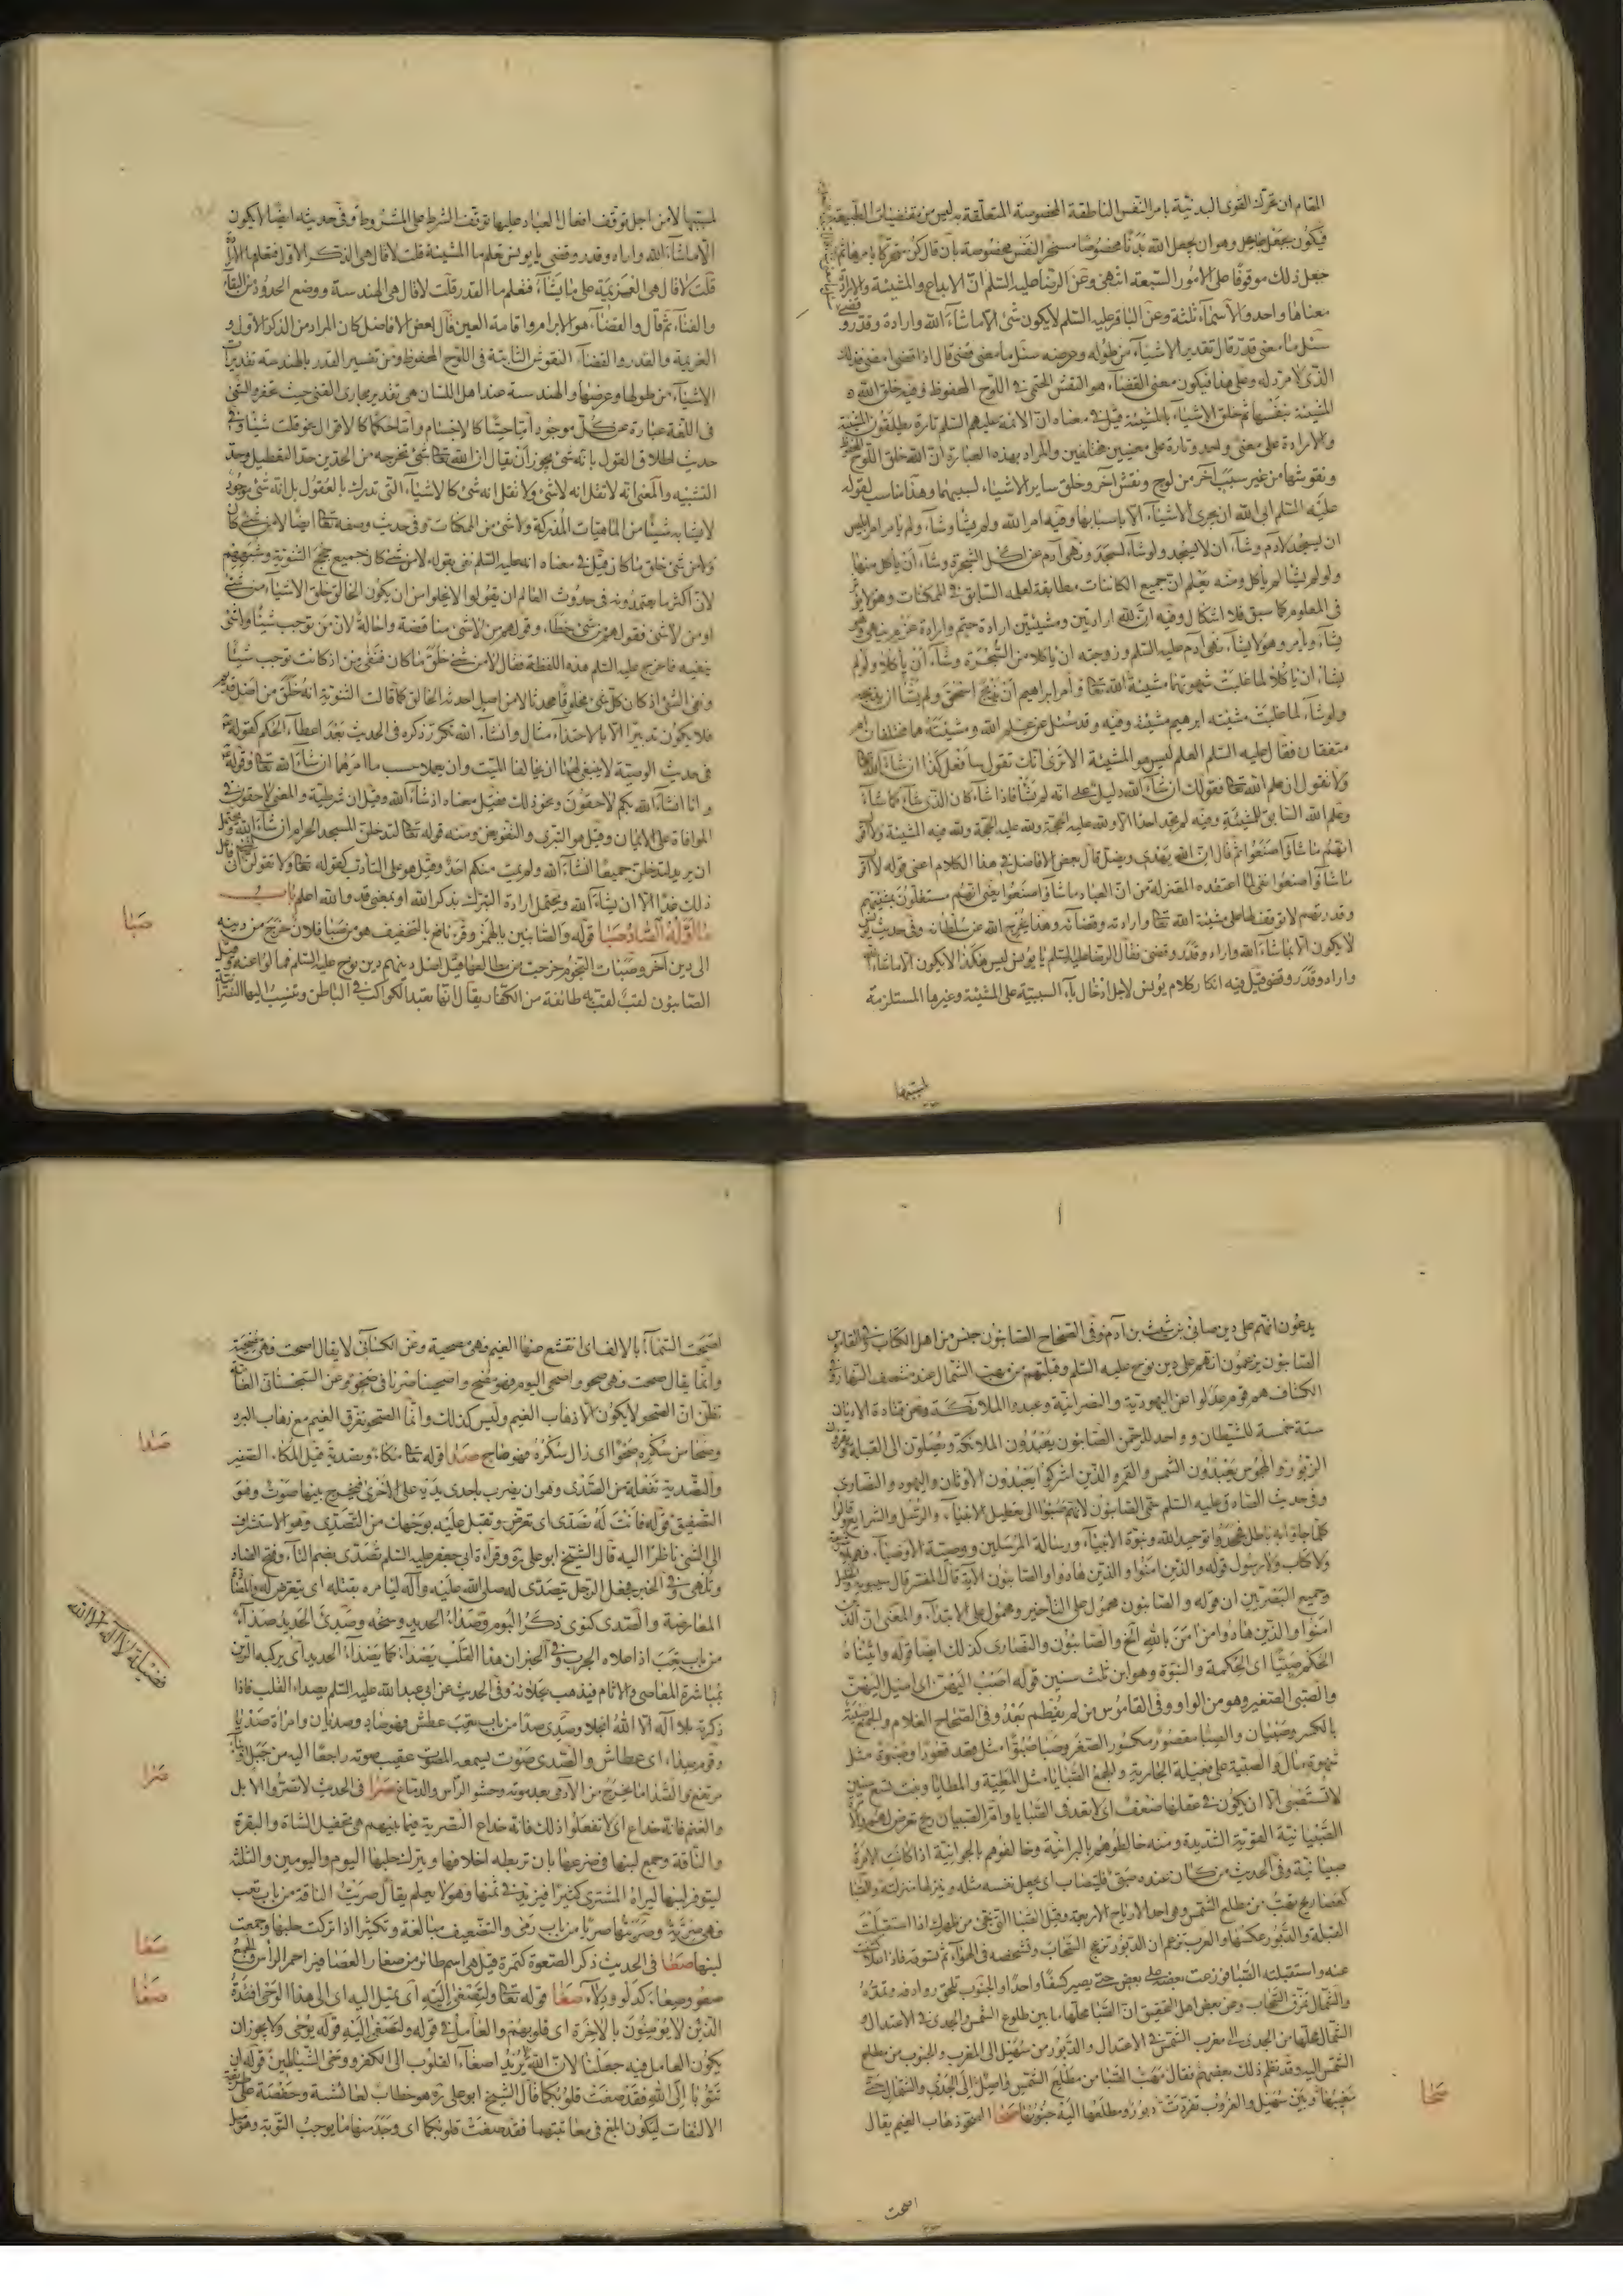 المقام ان تحرك القوى البدنية بامر النفس الناطقة المخصوصة المتعلقة به ليس من مقتضيات الطبيعة
فيكون بجعل جاعل وهو ان يجعل الله بدنا مخصوصا مسخر النفس مخصوصة بان قال كن متحركا بامرها ثم
جعل ذلك موقوفا على الامور السبعة انتهى وعن الرضا عليه السلم ان الابداع والمشيئة والارادة
معناها واحد والاسماء ثلثة وعن الباقر عليه السلم لا يكون شئ الا ما شاء الله واراده وقدر وقضى
سئل ما معنى قدر قال تقدير الاشياء من طوله وعرضه سئل ما معنى قضى قال اذا قضى امضى فذلك
الذى لا مرد له وعلى هذا فيكون معنى القضاء هو النقش الحتمى فى اللوح المحفوظ وفيه خلق الله
المشيئة بنفسها ثم خلق الاشياء بالمشيئة قيل فى معناه ان الائمة عليهم السلم تارة يطلقون المشيئة
والارادة على معنى واحد وتارة على معنيين مختلفين والمراد بهذه العبارة ان الله خلق اللوح المحفوظ
ونقوشها من غير سبب آخر من لوح ونقش آخر وخلق ساير الاشياء بسببهما وهذا مناسب لقوله
عليه السلم ابى الله ان يجرى الاشياء الا باسبابها وفيه امر الله ولم يشأ وشاء ولم يامر امر ابليس
ان يسجد لادم وشاء ان لا يسجد ولو شاء لسجد ونهى آدم عن اكل الشجرة وشاء ان ياكل منها
ولو لم يشأ لم ياكل ومنه يعلم ان جميع الكائنات مطابقة لعلمه السابق فى الممكنات وهو لا يؤثر
فى المعلوم كما سبق فلا اشكال وفيه ان لله ارادتين ومشيئتين ارادة حتم وارادة عزم ينهى وهو
يشاء ويأمر وهو لا يشاء نهى آدم عليه السلم وزوجته ان ياكلا من الشجرة وشاء ان ياكلا ولو لم
يشأ ان ياكلا لما غلبت شهوتهما مشيئة الله تعا وامر ابراهيم ان يذبح اسحق ولم يشأ ان يذبحه
ولو شاء لما غلبت مشيئته ابرهيم مشيئة وفيه وقد سئل عن علم الله ومشيئته هما مختلفان ام
متفقان فقال عليه السلم العلم ليس هو المشيئة الا ترى انك تقول سافعل كذا ان شاء الله
ولا تقول ان علم الله تعا فقولك ان شاء الله دليل على انه لم يشأ فاذا شاء كان الذى شاء كما شاء
وعلم الله السابق للمشيئة وفيه لم تجد احدا الا ولله عليه الحجة ولله فيه المشيئة ولا اقول
انهم ما شاؤا صنعوا ثم قال ان الله يهدى ويضل قال بعض الافاضل فى هذا الكلام اعنى قوله لا اقول
ما شاؤا صنعوا نفى لما اعتقده المعتزلة من ان العباد ما شاؤا صنعوا يعنى انهم مستقلون بمشيتهم
وقدرتهم لا توقف لها على مشيئة الله تعا وارادته وقضائه وهذا يخرج الله عن سلطانه وفى حديث يونس
لا يكون الا بما شاء الله واراد وقدر وقضى فقال الرضا عليه السلم يا يونس ليس هكذا لا يكون الا ما شاء الله
واراد وقدر وقضى قيل فيه انكار كلام يونس لاجل ادخال باء السببية على المشيئة وغيرها المستلزمة
لمسببها
لمسببها لا من اجل توقف افعال العباد عليها توقف الشرط على المشروط وفى حديثه ايضا لا يكون
الا ما شاء الله واراد وقدر وقضى يا يونس تعلم ما المشيئة قلت لا قال هى الذكر الاول فتعلم ما الارادة
قلت لا قال هى العزيمة على ما يشاء فتعلم ما القدر قلت لا قال هى الهندسة ووضع الحدود من البقاء
والفناء ثم قال والقضاء هو الابرام واقامة العين قال بعض الافاضل كان المراد من الذكر الاول و
العزيمة والقدر والقضاء النقوش الثابتة فى اللوح المحفوظ ومن تفسير القدر بالهندسة تقدير
الاشياء من طولها وعرضها والهندسة عند اهل اللسان هى تقدير مجارى القنى حيث تحفر والشئ
فى اللغة عبارة عن كل موجود اما حسا كالاجسام واما حكما كالاقوال نحو قلت شيئا وفى
حديث اطلاق القول بانه شئ يجوز ان يقال ان الله تعا شئ تخرجه من الحدين حد التعطيل وحد
التشبيه والمعنى انه لا تقل انه لا شئ ولا تقل انه شئ كالاشياء التى تدرك بالعقول بل انه شئ موجود
لا يشابه شيئا من الماهيات المدركة ولا شئ من الممكنات وفى حديث وصفه تعا ايضا لا من شئ كان
ولا من شئ خلق ما كان قيل فى معناه انه عليه السلم نفى بقوله لا من شئ كان جميع حجج الثنوية وشبههم
لان اكثر ما يعتمدونه فى حدوث العالم ان يقولوا لا يخلوا من ان يكون الخالق خلق الاشياء من شئ
او من لا شئ فقولهم من شئ خطاء وقولهم من لا شئ مناقضة واحالة لان من توجب شيئا ولا شئ
ينفيه فاخرج عليه السلم هذه اللفظة فقال لا من شئ خلق ما كان فنفى من اذ كانت توجب شيئا
ونفى الشئ اذ كان كل شئ مخلوقا محدثا لا من اصل احدثه الخالق كما قالت الثنوية انه خلق من اصل قديم
فلا يكون تدبير الا باحتذاء مثال وانشاء الله تكرر ذكره فى الحديث بعد اعطاء الحكم كقوله
فى حديث الوصية لا ينبغى لهما ان يخالفا الميت وان يعملا حسب ما امرهما ان شاء الله تعا وقوله
وانا انشاء الله بكم لاحقون ونحو ذلك فقيل معناه اذ شاء الله وقيل ان شرطية والمعنى لاحقون فى
الموافاة على الايمان وقيل هو التبرى والتفويض ومنه قوله تعا لتدخلن المسجد الحرام ان شاء الله ويحتمل
ان يريد لتدخلن جميعا انشاء الله ولم يمت منكم احد وقيل هو على التأدب كقوله تعا ولا تقولن لشئ انى فاعل
ذلك غدا الا ان يشاء الله ويحتمل ارادة التبرك بذكر الله او بمعنى قد والله اعلم باب
ما اوله الصاد صبا قوله والصابئين بالهمز وقرء نافع بالتخفيف هو من صبا فلان خرج من دينه
الى دين آخر وصبات النجوم خرجت من مطالعها قيل اصل دينهم دين نوح عليه السلم فمالوا عنه وقيل
الصابئون لقب لقب به طائفة من الكفار يقال انها تعبد الكواكب فى الباطن وتنسب اليها النصرانية
صبا
يدعون انهم على دين صابئ بن شيث بن آدم وفى الصحاح الصابئون جنس من اهل الكتاب وفى القاموس
الصابئون يزعمون انهم على دين نوح عليه السلم وقبلتهم من مهب الشمال عند منتصف النهار وفى
الكشاف هم قوم عدلوا عن اليهودية والنصرانية وعبدوا الملائكة وعن قتادة الاديان
ستة خمسة للشيطان وواحد للرحمن الصابئون يعبدون الملائكة ويصلون الى القبلة ويقرؤن
الزبور والمجوس يعبدون الشمس والقمر والذين اشركوا يعبدون الاوثان واليهود والنصارى
وفى حديث الصادق عليه السلم سمى الصابئون لانهم صبوا الى تعطيل الانبياء والرسل والشرايع وقالوا
كلما جاؤا به باطل فجحدوا توحيد الله ونبوة الانبياء ورسالة المرسلين ووصية الاوصياء فهم بلا شريعة
ولا كتاب ولا رسول قوله والذين امنوا والذين هادوا والصابئون الاية قال المفسر قال سيبويه والخليل
وجميع البصريين ان قوله والصابئون محمول على التاخير ومحمول على الابتداء والمعنى ان الذين
امنوا والذين هادوا من امن بالله الخ والصابئون والنصارى كذلك ايضا قوله واتيناه
الحكم صبيا اى الحكمة والنبوة وهو ابن ثلث سنين قوله اصب اليهن اى اميل اليهن
والصبى الصغير وهو من الواو وفى القاموس من لم يفطم بعد وفى الصحاح الغلام والجمع صبية
بالكسر وصبيان والصبا مقصور مكسور الصغر وصبا صبوا مثل قعد قعودا وصبوة مثل
شهوة مال والصبية على فعيلة الجارية والجمع الصبايا مثل المطية والمطايا وبنت تسع سنين
لا تستصبى الا ان يكون فى عقلها ضعف اى لا تعد فى الصبايا وام الصبيان ريح تعرض لهم والا
الصبيانية القوية الشديدة ومنه خالطوهم بالبرانية وخالفوهم بالجوانية اذا كانت الامرة
صبيانية وفى الحديث من كان عنده صبى فليتصاب اى يجعل نفسه مثله وينزلها منزلته والصبا
كعصا ريح تهب من مطلع الشمس وهى احد الارياح الاربعة وقيل الصبا التى تجئ من ظهرك اذا استقبلت
القبلة والدبور عكسها والعرب تزعم ان الدبور تزعج السحاب وتشخصه فى الهواء ثم تسوقه فاذا علا كشفت
عنه واستقبلته الصبا فوزعت بعضه على بعض حتى يصير كسفا واحدا والجنوب تلحق روادفه وتمده
والشمال تمزق السحاب وعن بعض اهل التحقيق ان الصبا محلها ما بين طلوع الشمس والجدى فى الاعتدال و
الشمال محلها من الجدى الى مغرب الشمس فى الاعتدال والدبور من سهيل الى المغرب والجنوب من مطلع
الشمس اليه وقد نظم ذلك بعضهم فقال مهب الصبا من مطلع الشمس واصل الى الجدى والشمال حتى
مغيبها وبين سهيل والغروب تفردت دبور ومطلعها اليه جنوبها صحا الصحو ذهاب الغيم يقال
صحا
اصحت
اصحت السماء بالالف اى انقشع عنها الغيم فهى مصحية وعن الكسائى لا يقال اصحت فهى مصحية
وانما يقال صحت وهى صحو واصحى اليوم فهو مصح واصحينا صرنا فى صحو وعن السجستانى العامة
تظن ان الصحو لا يكون الا ذهاب الغيم وليس كذلك وانما الصحو تفرق الغيم مع ذهاب البرد
وصحا من سكره صحوا اى زال سكره فهو صاح صدا قوله تعا مكاء وتصدية قيل المكاء الصفير
والتصدية تفعلة من الصدى وهو ان يضرب باحدى يديه على الاخرى فيخرج بينهما صوت وهو
التصفيق قوله فانت له تصدى اى تعرض وتقبل عليه بوجهك من التصدى وهو الاستشراف
الى الشئ ناظرا اليه قال الشيخ ابو على ره وقراءة ابى جعفر عليه السلم تصدى بضم التاء وفتح الصاد
وتلهى وفى الخبر فجعل الرجل يتصدى له صلى الله عليه وآله ليامره بقتله اى يتعرض له والمصاداة
المعارضة والصدى كنوى ذكر البوم وصداء الحديد وسخه وصدئ الحديد صداء
من باب تعب اذا علاه الجرب وفى الخبر ان هذا القلب يصدء كما يصدء الحديد اى يركبه الرين
بمباشرة المعاصى والاثام فيذهب بجلائه وفى الحديث عن ابى عبد الله عليه السلم يصداء القلب فاذا
ذكرته بلا آله الا الله انجلا وصدى صدا من باب تعب عطش فهو صاد وصديان وامراة صديا
وقوم صداء اى عطاش والصدى صوت يسمعه المصوت عقيب صوته راجعا اليه من جبل او بناء
مرتفع والصدا ما يخرج من الادمى بعد موته وحشو الراس والدماغ صرا فى الحديث لا تصروا الابل
والغنم فانه خداع اى لا تفعلوا ذلك فانه خداع التصرية فيما بينهم هى تحفيل الشاة والبقرة
والناقة وجمع لبنها فى ضرعها بان تربط اخلافها ويترك حلبها اليوم واليومين والثلثة
ليتوفر لبنها ليراه المشترى كثيرا فيزيد فى ثمنها وهو لا يعلم يقال صريت الناقة من باب تعب
فهى صرية وصريتها صريا من باب رمى والتضعيف مبالغة وتكثيرا اذا تركت حلبها وجمعت
لبنها صعا فى الحديث ذكر الصعوة كتمرة قيل هى اسم طائر من صغار العصافير احمر الراس والجمع
صعو وصعاء كدلو ودلاء صغا قوله تعا ولتصغى اليه اى يميل اليه اى الى هذا الوحى افئدة
الذين لا يؤمنون بالاخرة اى قلوبهم والعامل فى قوله ولتصغى اليه قوله يوحى ولا يجوز ان
يكون العامل فيه جعلنا لان الله لا يريد اصغاء القلوب الى الكفر ووحى الشياطين قوله ان
تتوبا الى الله فقد صغت قلوبكما قال الشيخ ابو على ره هو خطاب لعائشة وحفصة على طريقة
الالتفات ليكون ابلغ فى معاتبتهما فقد صغت قلوبكما اى وجد منهما ما يوجب التوبة وهو ميل
صدا
فضيلة لا اله الا الله
صرا
صعا
صغا